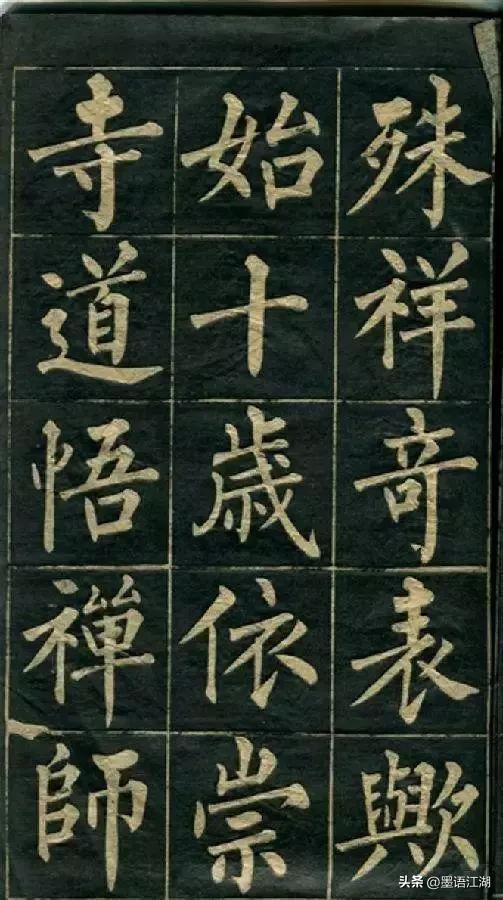 殊祥奇表歟
始十歲依崇
寺道悟禪師
头条@墨语江湖